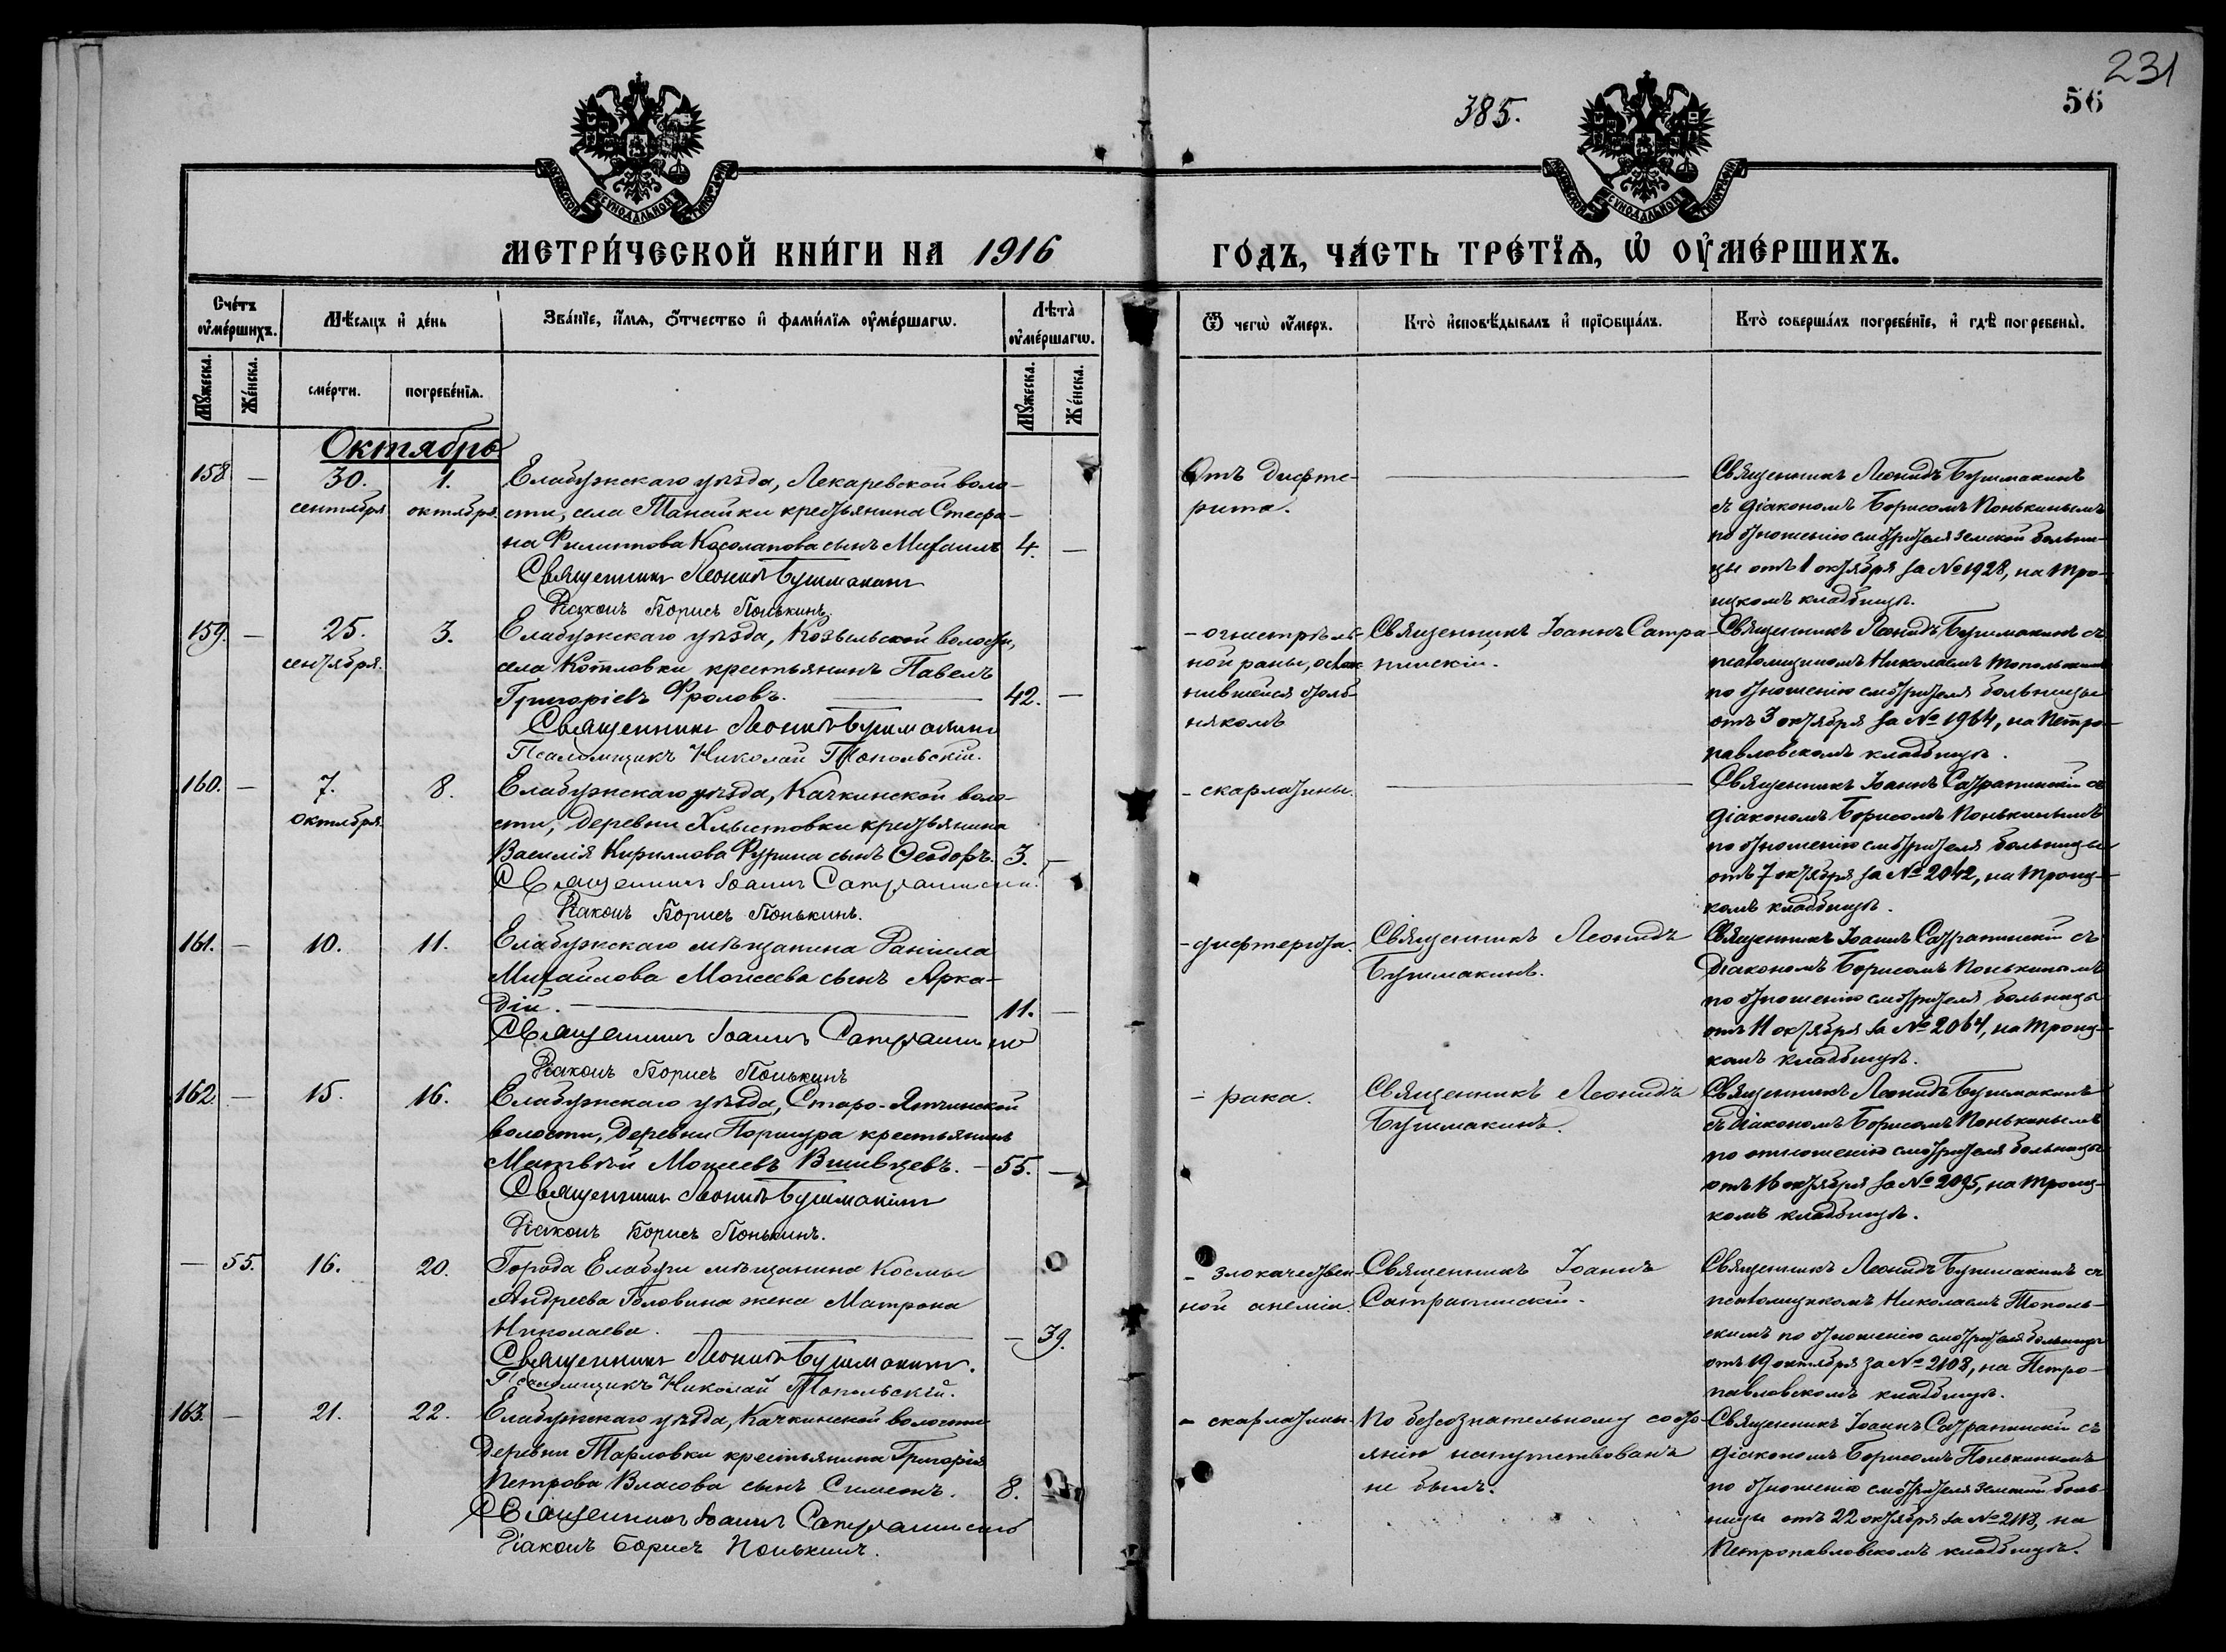 231
56
385.
МЕТРИ́ЧЕСКОЙ КНИ́ГИ НА 1916
ГО́ДЪ, ЧА́СТЬ ТРЕ́ТЇѦ, Ѡ҆ ОУ҆МЕ́РШИХЪ.
Сче́тъ оу҆ме́ршихъ.
Мѣ́сѧцъ и҆ де́нь
Зва́нїе, и҆́мѧ, ѻ҆́тчество и҆ фами́лїѧ оу҆ме́ршагѡ.
Лѣта̀ оу҆ме́ршагѡ.
Ѿ чегѡ̀ оу҆́меръ.
Кто̀ и҆сповѣ́дывалъ и҆ прїѡбща́лъ.
Кто̀ соверша́лъ погребе́нїе, и҆ гдѣ̀ погребены̀.
Му́жеска.
Же́нска.
сме́рти.
погребе́нїѧ.
Му́жеска.
Же́нска.
Октябрь
158 — 30. сентября 1. октября.
Елабужскаго уѣзда, Лекаревской воло-
сти, села Танайки крестьянина Стефа-
на Филиппова Косолапова сынъ Михаилъ 4. —
Священникъ Леонидъ Бушмакинъ
Діаконъ Борисъ Понькинъ.
Отъ дифте-
рита.
Священникъ Леонидъ Бушмакинъ
съ діакономъ Борисомъ Понькинымъ
по отношенію смотрителя земской больни-
цы отъ 1 октября за № 1928, на Трои-
цкомъ кладбищѣ.
159. — 25. сентября. 3.
Елабужскаго уѣзда, Козыльской волости,
села Котловки крестьянинъ Павелъ
Григоріевъ Фроловъ. 42. —
Священникъ Леонидъ Бушмакинъ
Псаломщикъ Николай Топольскій.
- огнестрѣль-
ной раны, ослож-
нившейся столб-
някомъ
Священникъ Іоаннъ Сатра-
пинскій.
Священникъ Леонидъ Бушмакинъ съ
псаломщикомъ Николаемъ Топольскимъ
по отношенію смотрителя больницы
отъ 3 октября за № 1964, на Петро-
павловскомъ кладбищѣ.
160. — 7. октября. 8.
Елабужскаго уѣзда, Качкинской воло-
сти, деревни Хлыстовки крестьянина
Василія Кириллова Фурина сынъ Ѳеодоръ. 3. —
Священникъ Іоаннъ Сатрапинскій.
Діаконъ Борисъ Понькинъ.
- скарлатины.
Священникъ Іоаннъ Сатрапинскій съ
діакономъ Борисомъ Понькинымъ
по отношенію смотрителя больницы
отъ 7 октября за № 2042, на Троиц-
комъ кладбищѣ.
161. — 10. 11.
Елабужскаго мѣщанина Даніила
Михайлова Моисеева сынъ Арка-
дій. 11. —
Священникъ Іоаннъ Сатрапинскій
Діаконъ Борисъ Понькинъ
- дифтерита.
Священникъ Леонидъ
Бушмакинъ.
Священникъ Іоаннъ Сатрапинскій съ
діакономъ Борисомъ Понькинымъ
по отношенію смотрителя больницы
отъ 11 октября за № 2064, на Троиц-
комъ кладбищѣ.
162. — 15. 16.
Елабужскаго уѣзда, Старо-Ятчинской
волости, деревни Поршура крестьянинъ
Матвѣй Моисеевъ Вшивцевъ. — 55. —
Священникъ Леонидъ Бушмакинъ
Діаконъ Борисъ Понькинъ.
- рака.
Священникъ Леонидъ
Бушмакинъ.
Священникъ Леонидъ Бушмакинъ
съ діакономъ Борисомъ Понькинымъ
по отношенію смотрителя больницы
отъ 16 октября за № 2095, на Троиц-
комъ кладбищѣ.
— 55. 16. 20.
Города Елабуги мѣщанина Космы
Андреева Головина жена Матрона
Николаева. — 39.
Священникъ Леонидъ Бушмакинъ.
Псаломщикъ Николай Топольскій.
- злокачествен-
ной анеміи.
Священникъ Іоаннъ
Сатрапинскій.
Священникъ Леонидъ Бушмакинъ съ
псаломщикомъ Николаемъ Тополь-
скимъ по отношенію смотрителя больницы
отъ 19 октября за № 2108, на Петро-
павловскомъ кладбищѣ.
163. — 21. 22.
Елабужскаго уѣзда, Качкинской волости
деревни Тарловки крестьянина Григорія
Петрова Власова сынъ Симеонъ. 8.
Священникъ Іоаннъ Сатрапинскій
Діаконъ Борисъ Понькинъ.
- скарлатины.
По безсознательному состо-
янію напутствованъ
не былъ.
Священникъ Іоаннъ Сатрапинскій съ
діакономъ Борисомъ Понькинымъ
по отношенію смотрителя земской боль-
ницы отъ 22 октября за № 2118, на
Петропавловскомъ кладбищѣ.